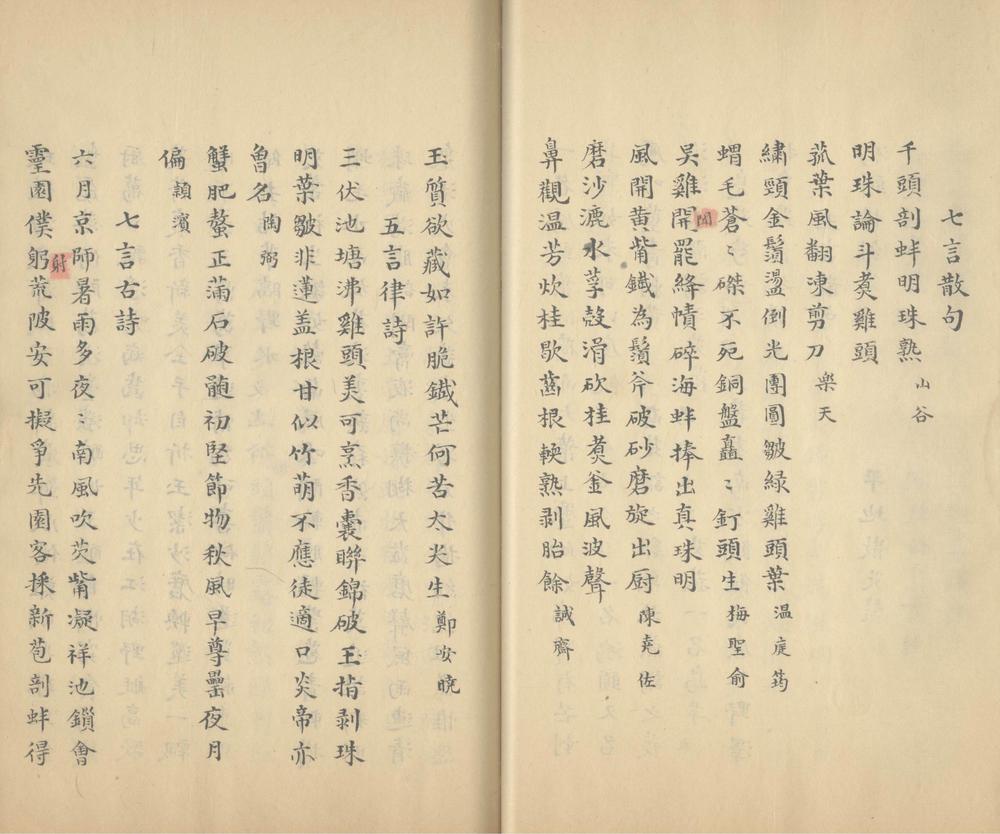 七言散句
千頭剖蚌明珠熟 山谷
明珠論斗煑雞頭
菰葉風翻凍剪刀 樂天
繡頸金鬚盪倒光團圓皺綠雞頭葉 温庭筠
蝟毛蒼〻磔不死銅盤矗〻釘頭生 梅聖俞
吳雞開鬭罷絳幘碎海蚌捧出真珠明
風開黃觜鐵為鬚斧破砂磨旋出厨 陳堯佐
磨沙漉水莩殼滑砍桂煑釜風波聲
鼻觀温芳炊桂歇齒根輭熟剥胎餘 誠齋
玉質欲藏如許脆鐵芒何苦太尖生 鄭安曉
五言律詩
三伏池塘沸雞頭美可烹香囊聯錦破玉指剥珠
明葉皺非蓮盖根甘似竹萌不應徒適口炎帝亦
魯名 陶弼
蟹肥螯正滿石破髄初堅節物秋風早尊罍夜月
偏 潁濱
七言古詩
六月京師暑雨多夜〻南風吹芡觜凝祥池鎖會
靈園僕躬射荒陂安可擬爭先園客採新苞剖蚌得